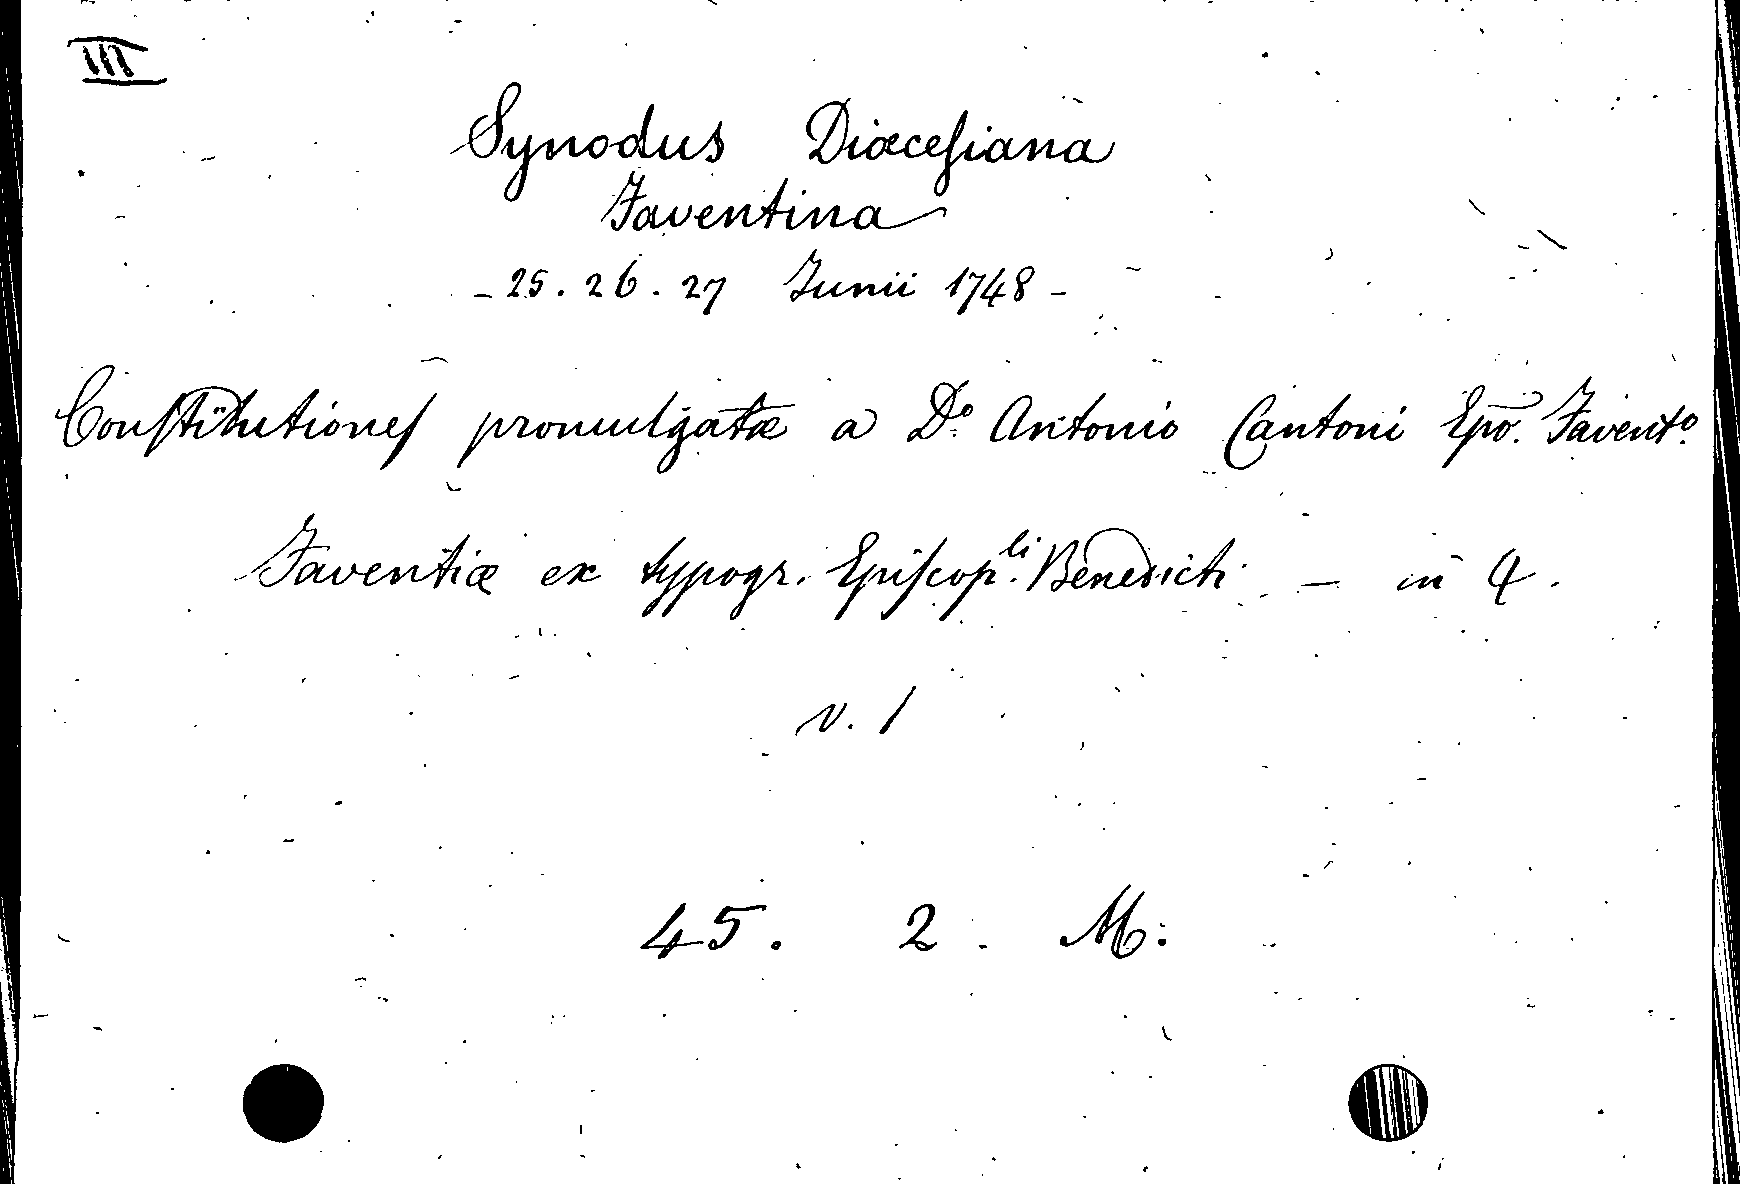 III
Synodus Diœceſiana
Faventina
- 25. 26. 27 Junii 1748 -
Conſtitutioneſ promulgatæ a D.º Antonio Cantoni Epo. Favent.º
Faventiæ ex typogr. Epiſcop.li Benedicti - in 4.
v. 1
45. 2. M.